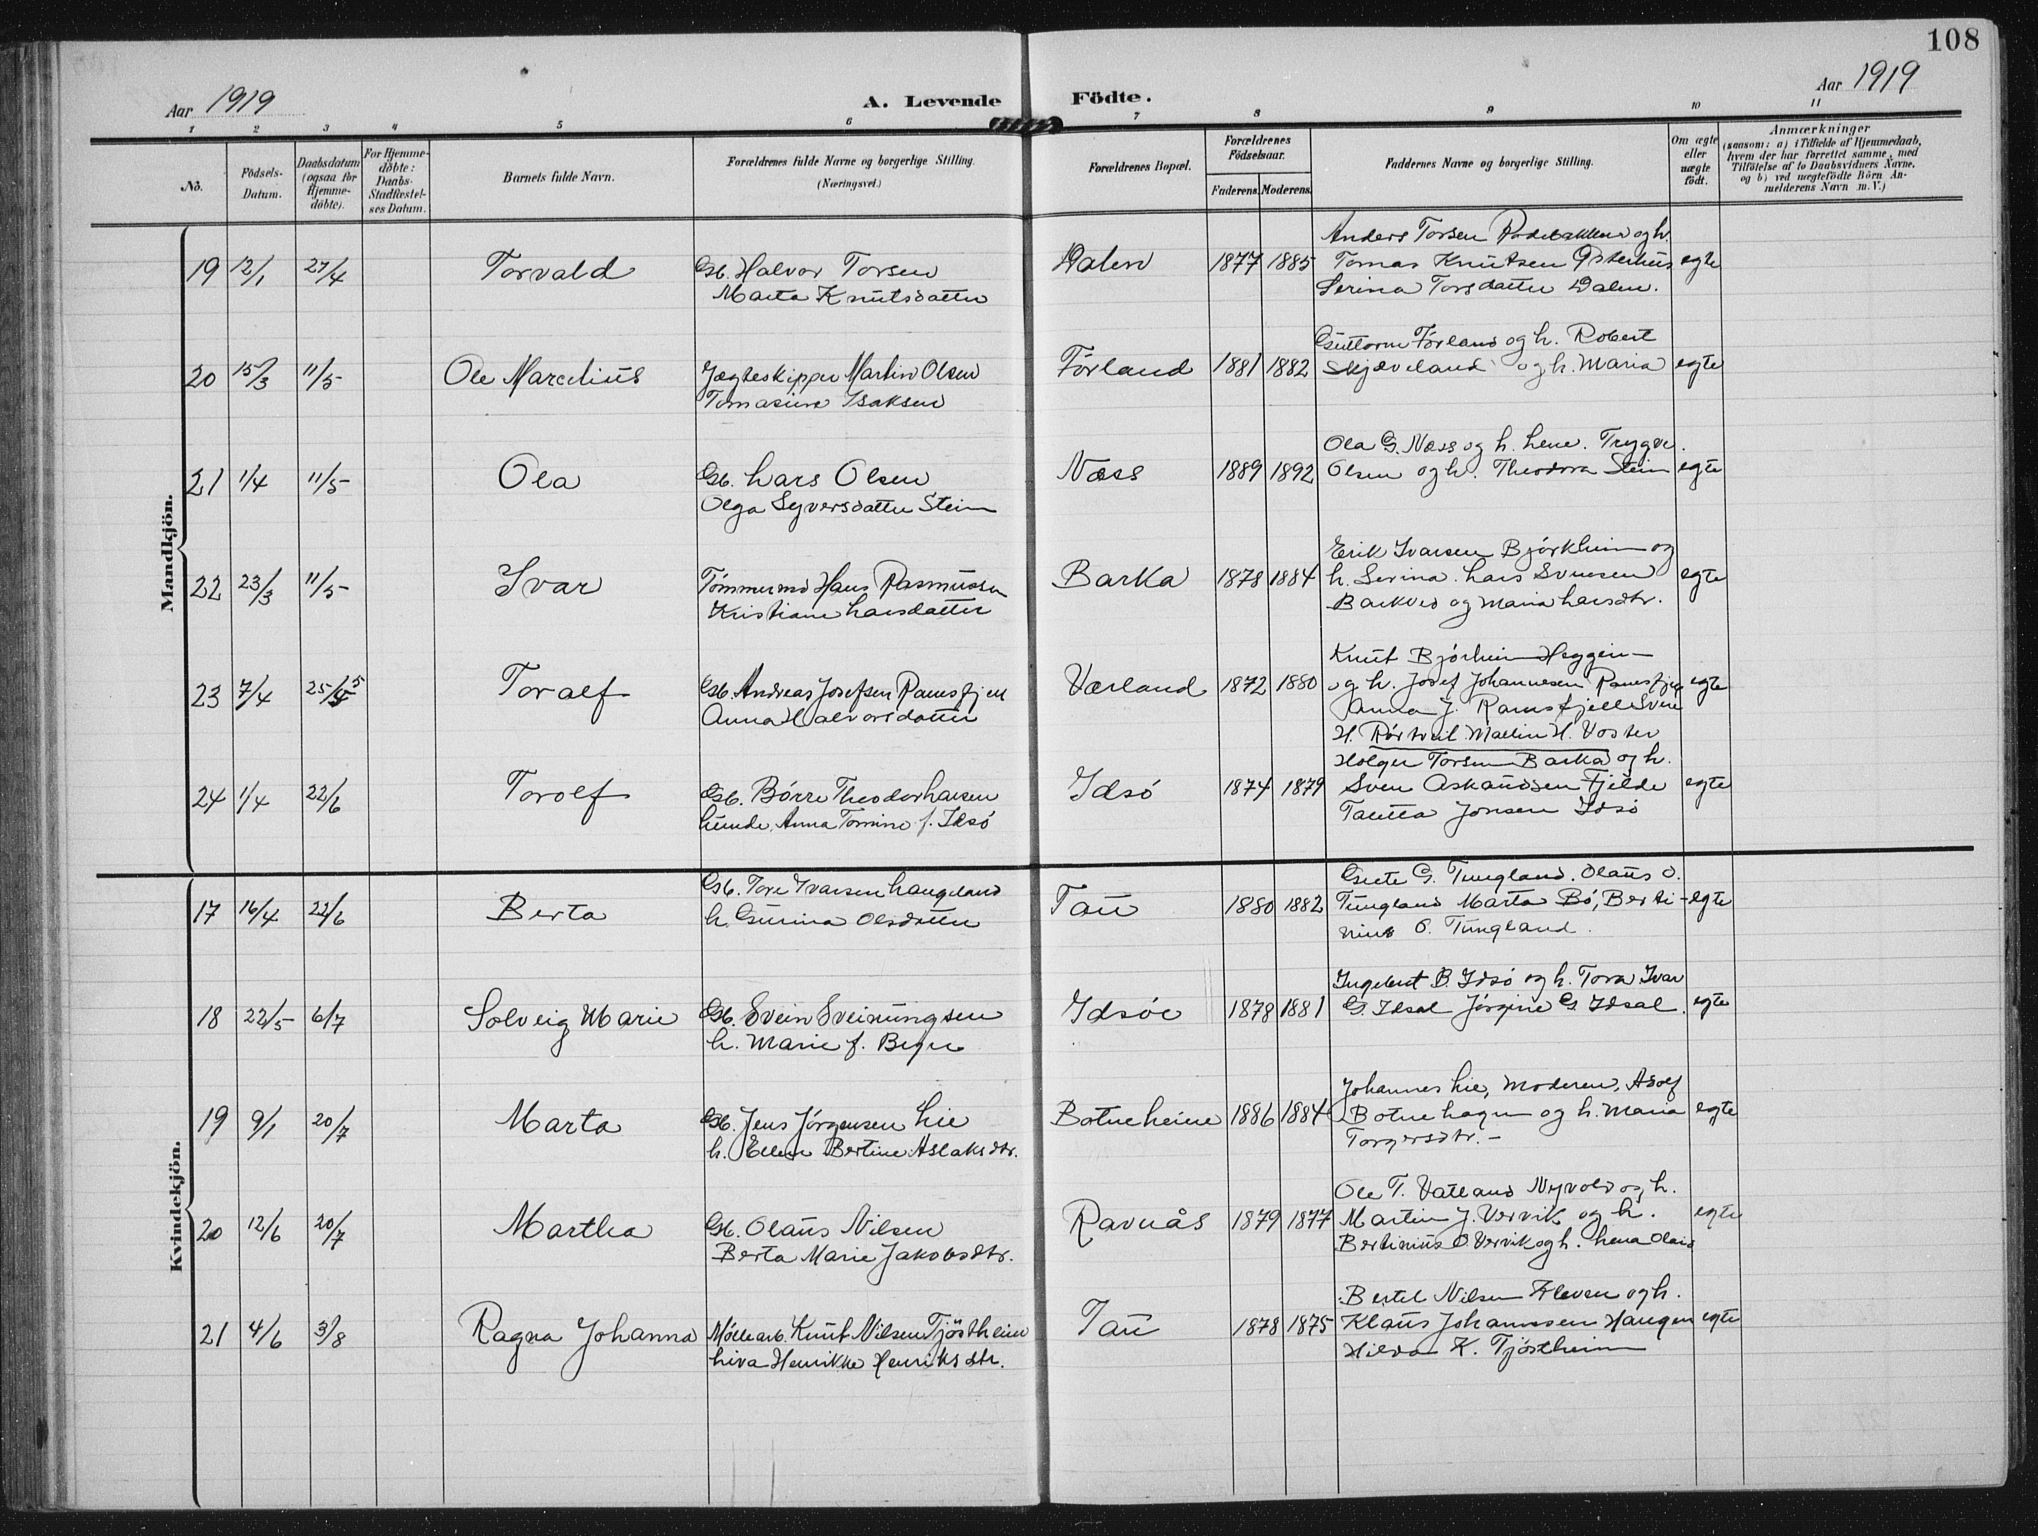 108
Aar 1919
A. Levende Födte.
Aar 1919
1 2 3 4 5 6 7 8 9 10 11
No.
Födsels-
Datum.
Daabsdatum
(ogsaa for
Hjemme-
döbte).
For Hjemme-
döbte:
Daabs-
Stadfestel-
ses Datum.
Barnets fulde Navn.
Forældrenes fulde Navne og borgerlige Stilling.
(Næringsvei.)
Forældrenes Bopæl.
Forældrenes
Födselsaar.
Faderens. Moderens.
Faddernes Navne og borgerlige Stilling.
Om ægte
eller
uægte
födt.
Anmærkninger
(saasom: a) i Tilfælde af Hjemmedaab,
hvem der har forrettet samme, med
Tilföielse af to Daabsvidners Navne.
og b) ved uægtefödte Börn An-
melderens Navn m. V.)
Mandkjön.
19 12/1 27/4 Torvald
Gb. Halvor Torsen
Marta Knutsdatter
Dalen 1877 1885
Anders Torsen og h.
Tomas Knutsen Østerhus
Serina Torsdatter Dalen.
egte
20 15/3 11/5 Ole Marcelius
Jægteskipper Martin Olsen
Tomasine Isaksen
Förland 1881 1882
Guttorm Förland og h. Robert
Skjæveland og h. Maria
egte
21 1/4 11/5 Ola
Gb. Lars Olsen
Olga Syversdatter Stein
Næss 1889 1892
Ola G. Næss og h. Lene. Trygve
Olsen og h. Theodora Stein
egte
22 23/3 11/5 Ivar
Tömmermd Hans Rasmussen
Kristiane Larsdatter
Barka 1878 1884
Erik Ivarsen Björkheim og
h. Serina. Lars Svensen
Barkved og Maria Larsdtr.
egte
23 7/4 25/5 Toralf
Gb. Andreas Josefsen Ramsfjell
Anna Halvorsdatter
Værland 1872 1880
Knut Björheim Heggen
og h. Josef Johannesen Ramsfjell
Anna J. Ramsfjell Svein
H. Rörtveit Mallin H. Voster
egte
24 1/4 22/6 Torolf
Gb. Börre Theodor Larsen
Lunde, Anna Tomine f. Idsö
Idsö 1874 1879
Holger Torsen Barka og h.
Sven Askandsen Fjelde
Tautta Jonsen Idsö
egte
Kvindekjön.
17 16/4 22/6 Berta
Gb. Tore Ivarsen Haugeland
h. Gurina Olsdatter
Tau 1880 1882
Grete G. Tungland. Olaus O.
Tungland Marta Bö, Berti-
nius O. Tungland.
egte
18 22/5 6/7 Solveig Marie
Gb. Svein Sveinungsen
h. Marie f.
Idsöe 1878 1881
Ingebret B. Idsö og h. Tora Ivar
G. Idsal Jörgine G. Idsal.
egte
19 9/1 20/7 Marta
Gb. Jens Jörgensen Lie
h. Ellen Bertine Aslaksdtr.
Botneheine 1886 1884
Johannes Lie, Moderen, Adolf
Botnehagen og h. Maria
Torgersdtr. –
egte
20 12/6 20/7 Martha
Gb. Olaus Nilsen
Berta Marie Jakobsdtr.
Ravnås 1879 1877
Ole T. Vatland Nyvold og h.
Martin J. Vervik og h.
Bertinius O. Vervik og h. Lena Olaus
egte
21 4/6 3/8 Ragna Johanna
Möllearb. Knut Nilsen Tjöstheim
Liva Henrikke Henriksdtr.
Tau 1878 1875
Bertel Nilsen Kleven og h.
Klaus Johanssen Haugen
Hilda K. Tjöstheim
egte